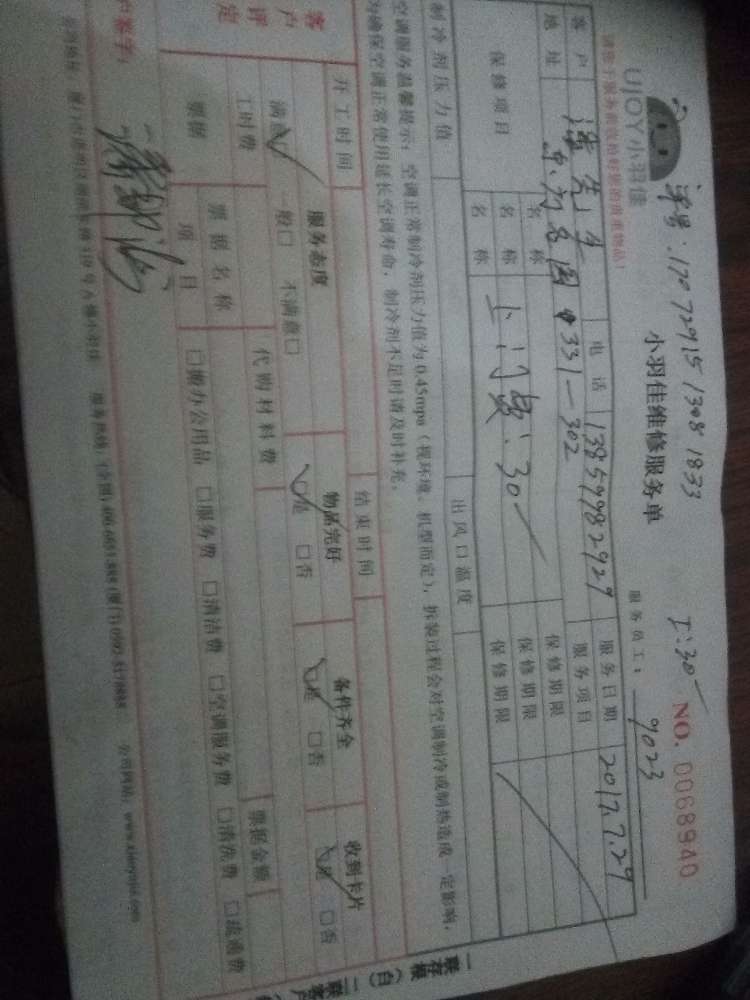 单号:1707291513081833
工:30一
UJOY小羽佳
小羽佳维修服务单
NO. 0068940
请您于服务前收拾好您的贵重物品!
服务员工: 9023
客户 潘先生 电话 13859982927 服务日期 2017.7.29
地址 331一302 服务项目
保修项目 名称 保修期限
名称 上门费:30一 保修期限
名称 保修期限
制冷剂压力值 出风口温度
空调服务温馨提示:空调正常制冷剂压力值为0.45mpa(视环境、机型而定),拆装过程会对空调制冷或制热造成一定影响,
为确保空调正常使用延长空调寿命,制冷剂不足时请及时补充。
开工时间 结束时间
客户评定 服务态度 物品完好 备件齐全 收到卡片
满意 一般□ 不满意□ 是 □否 是 □否 是 □否
工时费 代购材料费 票据金额
票据 票据名称
项目 □搬办公用品 □服务费 □清洁费 □空调服务费 □清洗费 □疏通费
户签字:
公司网站: